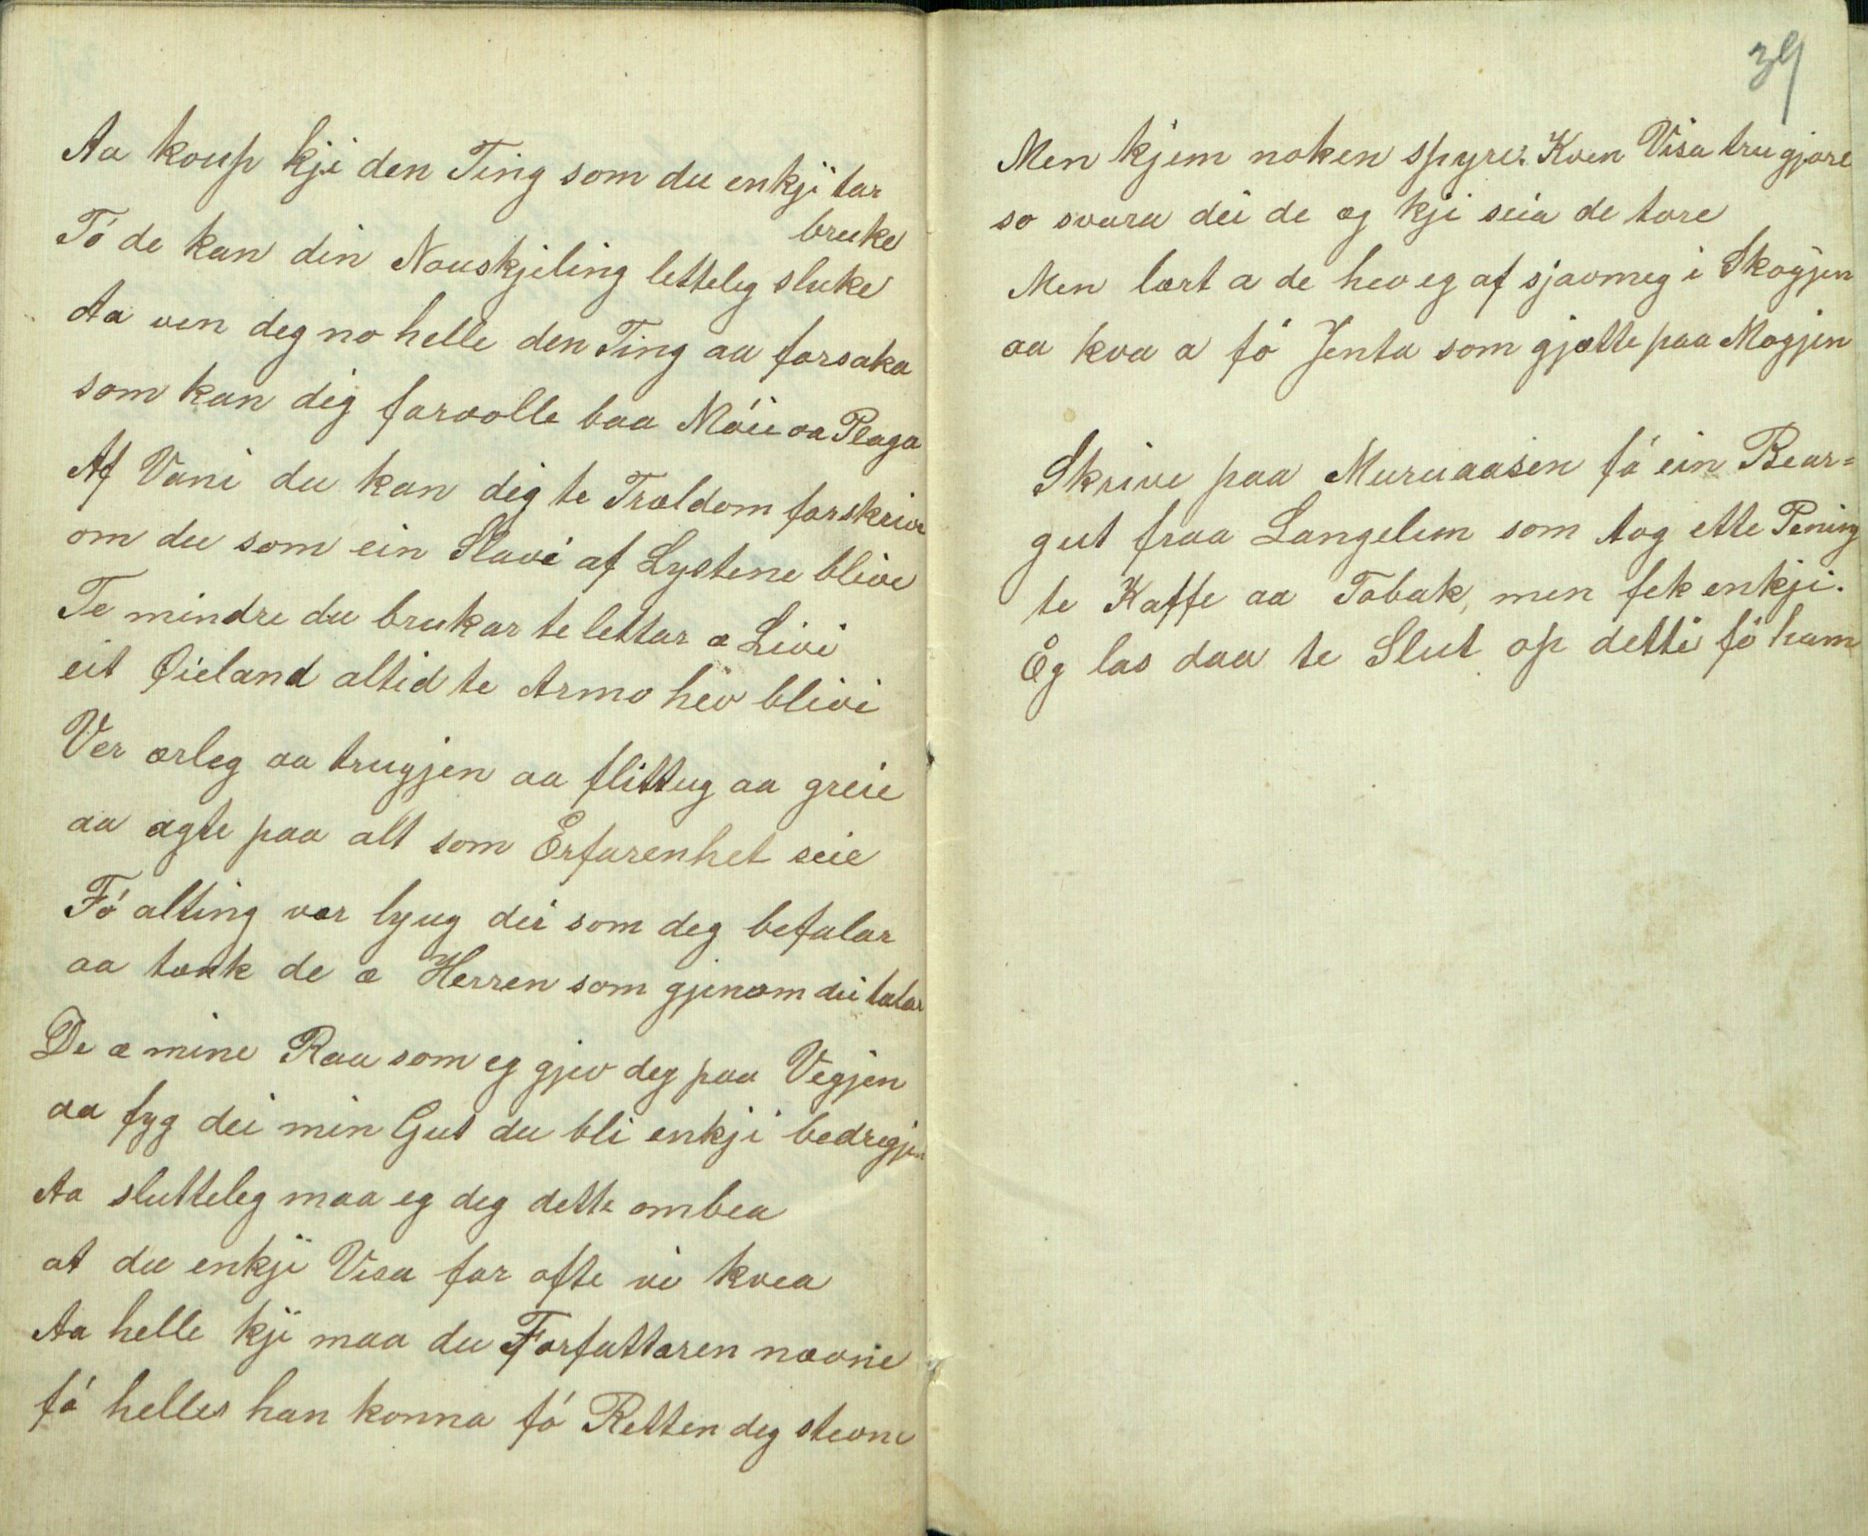 Aa koup kji den Ting som du enkji tar
bruke
Tó de kan din Nouskjeling letteleg sluke
Aa ven deg no helle den Ting aa forsaka
som kan dig forvolle baa Móie aa Plaga
Af Vani du kan dig te Trældom forskrive
om du som ein Slave af Lystene blive
Te mindre du brukar te lettar æ Livi
eit Øieland altid te Armo hev blivi
Ver ærleg aa trugjen aa flittug aa greie
aa agte paa alt som Erfarenhet seie
Fó alting vær lyug dei som deg befalar
aa tænk de æ Herren som gjenom dei talar
De æ mine Raa som eg gjev deg paa Vegjen
aa fyg dei min Gut du bli enkji bedregjen
Aa slutteleg maa eg deg dette ombea
at du enkji Visa for ofte vi kvea
Aa helle kji maa du Forfattaren nævne
fó helles han konna fó Retten deg stevne
39
Men kjem noken spyre: Kven Visa tru gjore
so svara dei de eg kji seia de tore
Men lært a de hev eg af sjavmeg i Skogjen
aa kva a fó Jenta som gjætte paa Mogjen
Skrive paa Muruaasen fó ein Bear=
gut fraa Langelim som tog ette Pening
te Kaffe aa Tobak, men fek enkji.
Eg las daa te Slut op detti fó ham